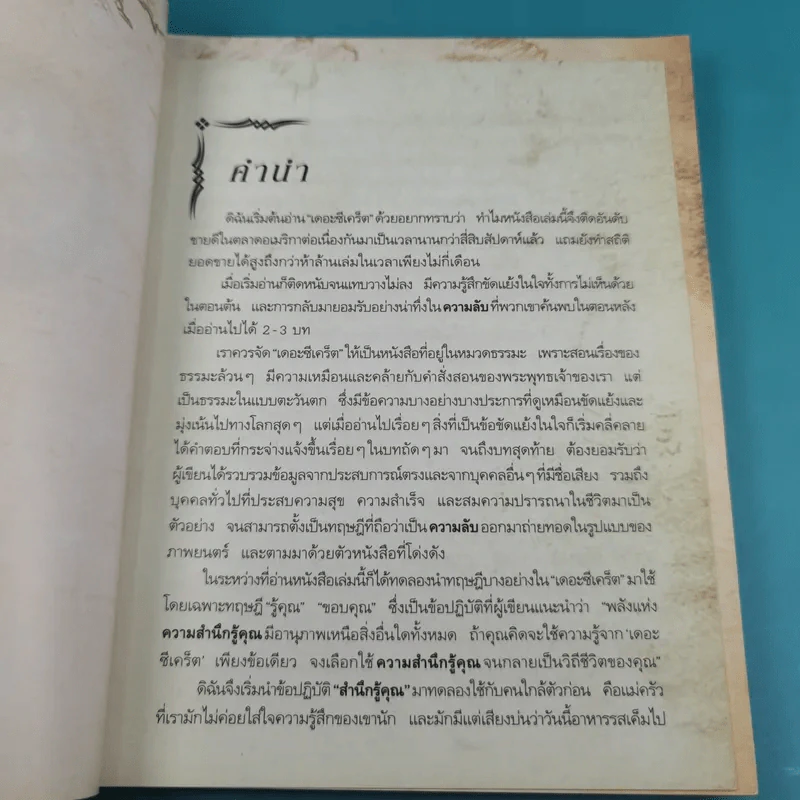 คำนำ
ดิฉันเริ่มต้นอ่าน "เดอะซีเคร็ต" ด้วยอยากทราบว่า ทำไมหนังสือเล่มนี้จึงติดอันดับ
ขายดีในตลาดอเมริกาต่อเนื่องกันมาเป็นเวลานานกว่าสี่สิบสัปดาห์แล้ว แถมยังทำสถิติ
ยอดขายได้สูงถึงกว่าห้าล้านเล่มในเวลาเพียงไม่กี่เดือน
เมื่อเริ่มอ่านก็ติดหนับจนแทบวางไม่ลง มีความรู้สึกขัดแย้งในใจทั้งการไม่เห็นด้วย
ในตอนต้น และการกลับมายอมรับอย่างน่าทึ่งใน ความลับ ที่พวกเขาค้นพบในตอนหลัง
เมื่ออ่านไปได้ 2 - 3 บท
เราควรจัด "เดอะซีเคร็ต" ให้เป็นหนังสือที่อยู่ในหมวดธรรมะ เพราะสอนเรื่องของ
ธรรมะล้วนๆ มีความเหมือนและคล้ายกับคำสั่งสอนของพระพุทธเจ้าของเรา แต่
เป็นธรรมะในแบบตะวันตก ซึ่งมีข้อความบางอย่างบางประการที่ดูเหมือนขัดแย้งและ
มุ่งเน้นไปทางโลกสุดๆ แต่เมื่ออ่านไปเรื่อยๆ สิ่งที่เป็นข้อขัดแย้งในใจก็เริ่มคลี่คลาย
ได้คำตอบที่กระจ่างแจ้งขึ้นเรื่อยๆ ในบทถัดๆ มา จนถึงบทสุดท้าย ต้องยอมรับว่า
ผู้เขียนได้รวบรวมข้อมูลจากประสบการณ์ตรงและจากบุคคลอื่นๆ ที่มีชื่อเสียง รวมถึง
บุคคลทั่วไปที่ประสบความสุข ความสำเร็จ และสมความปรารถนาในชีวิตมาเป็น
ตัวอย่าง จนสามารถตั้งเป็นทฤษฎีที่ถือว่าเป็น ความลับ ออกมาถ่ายทอดในรูปแบบของ
ภาพยนตร์ และตามมาด้วยตัวหนังสือที่โด่งดัง
ในระหว่างที่อ่านหนังสือเล่มนี้ก็ได้ทดลองนำทฤษฎีบางอย่างใน "เดอะซีเคร็ต" มาใช้
โดยเฉพาะทฤษฎี "รู้คุณ" "ขอบคุณ" ซึ่งเป็นข้อปฏิบัติที่ผู้เขียนแนะนำว่า "พลังแห่ง
ความสำนึกรู้คุณ มีอานุภาพเหนือสิ่งอื่นใดทั้งหมด ถ้าคุณคิดจะใช้ความรู้จาก 'เดอะ
ซีเคร็ต' เพียงข้อเดียว จงเลือกใช้ ความสำนึกรู้คุณ จนกลายเป็นวิถีชีวิตของคุณ"
ดิฉันจึงเริ่มนำข้อปฏิบัติ "สำนึกรู้คุณ" มาทดลองใช้กับคนใกล้ตัวก่อน คือแม่ครัว
ที่เรามักไม่ค่อยใส่ใจความรู้สึกของเขานัก และมักมีแต่เสียงบ่นว่าวันนี้อาหารรสเค็มไป